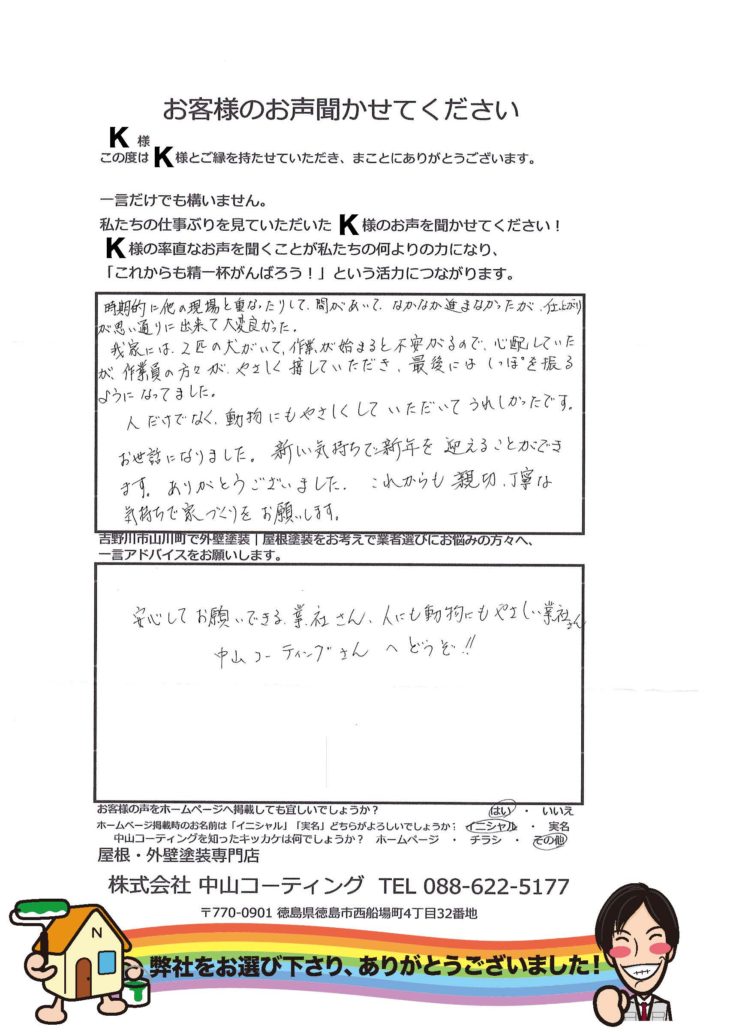 お客様のお声聞かせてください
K 様
この度は K 様とご縁を持たせていただき、まことにありがとうございます。
一言だけでも構いません。
私たちの仕事ぶりを見ていただいた K 様のお声を聞かせてください！
K 様の率直なお声を聞くことが私たちの何よりの力になり、
「これからも精一杯がんばろう！」という活力につながります。
時期的に他の現場と重なったりして、間があいて、なかなか進まなかったが、仕上がり
が思い通りに出来て大変良かった。
我家には、2匹の犬がいて、作業が始まると不安がるので、心配していた
が、作業員の方々が、やさしく接していただき、最後にはしっぽを振る
ようになってました。
人だけでなく、動物にもやさしくしていただいてうれしかったです。
お世話になりました。新しい気持ちで新年を迎えることができ
ます。ありがとうございました。これからも親切、丁寧な
気持ちで家づくりをお願いします。
吉野川市山川町で外壁塗装｜屋根塗装をお考えで業者選びにお悩みの方々へ、
一言アドバイスをお願いします。
安心してお願いできる業社さん、人にも動物にもやさしい業社さん
中山コーティングさんへどうぞ!!
お客様の声をホームページへ掲載しても宜しいでしょうか？ はい ・ いいえ
ホームページ掲載時のお名前は「イニシャル」「実名」どちらがよろしいでしょうか？ イニシャル ・ 実名
中山コーティングを知ったキッカケは何でしょうか？ ホームページ ・ チラシ ・ その他
屋根・外壁塗装専門店
株式会社 中山コーティング TEL 088-622-5177
〒770-0901 徳島県徳島市西船場町4丁目32番地
N
弊社をお選び下さり、ありがとうございました！